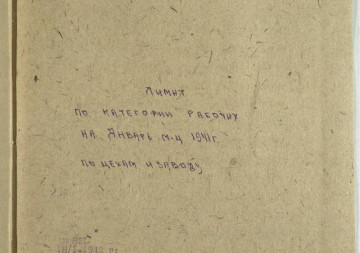 Лимит
по категории рабочих
на Январь м-ц 1941 г.
по цехам и заводу